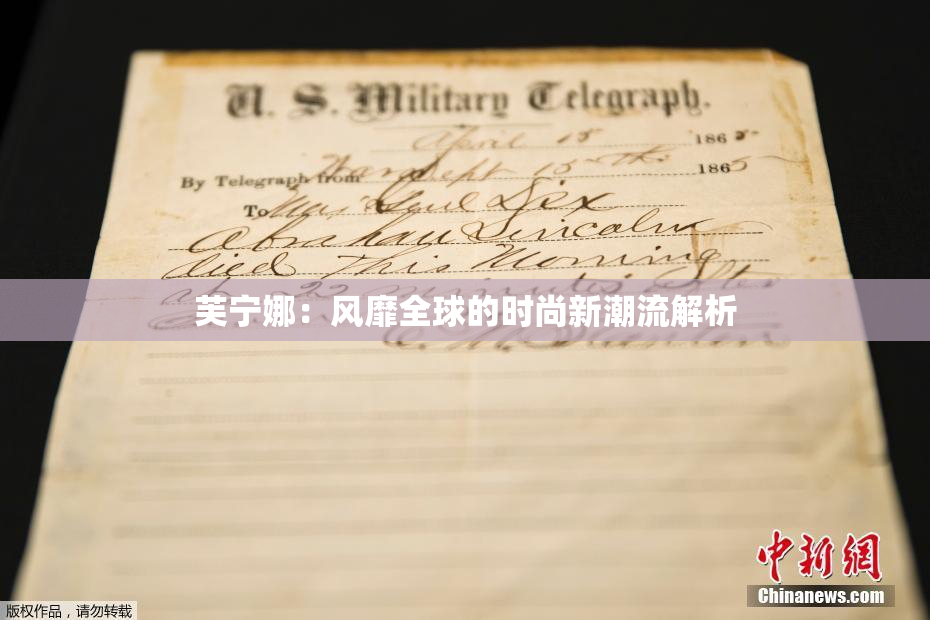 U. S. Military Telegraph.
April 15 1865
By Telegraph from War Dept 15th 1865
To Maj Genl Dix
Abraham Lincoln
died This Morning
at 22 minutes after
芙宁娜：风靡全球的时尚新潮流解析
E. M. Stanton
中新网
Chinanews.com
版权作品，请勿转载